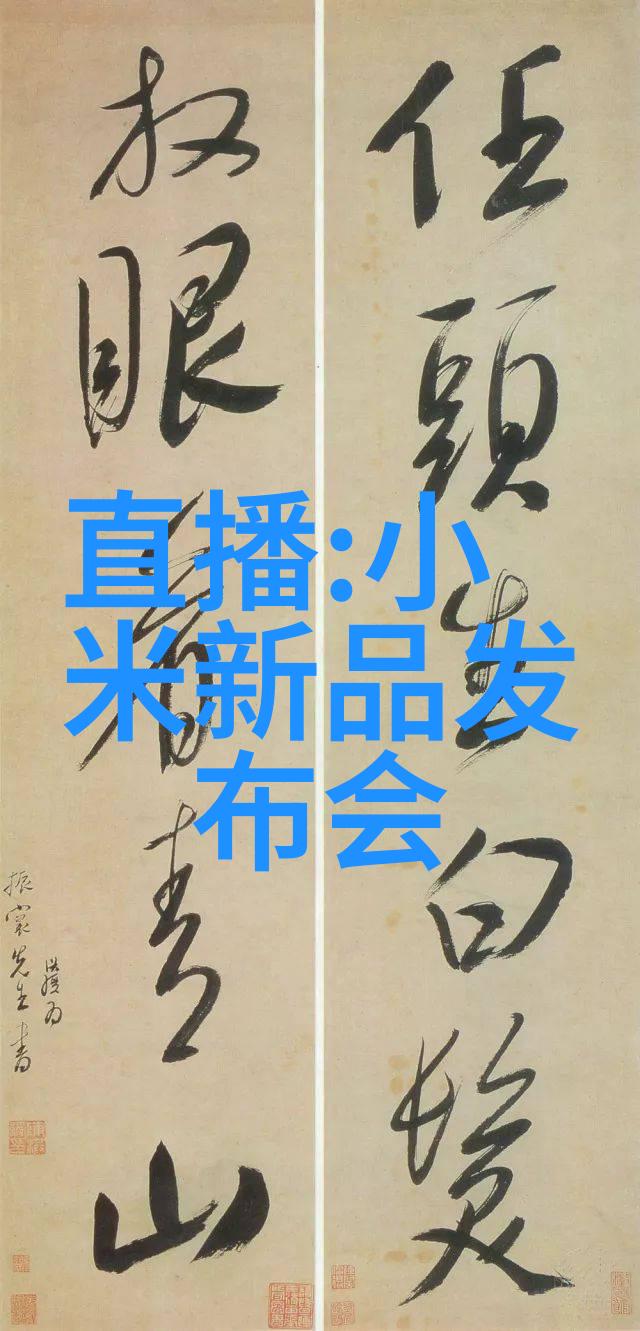 直播:小
米新品发
布会
任頭生白髮
放眼看青山
洪綬为
先生書